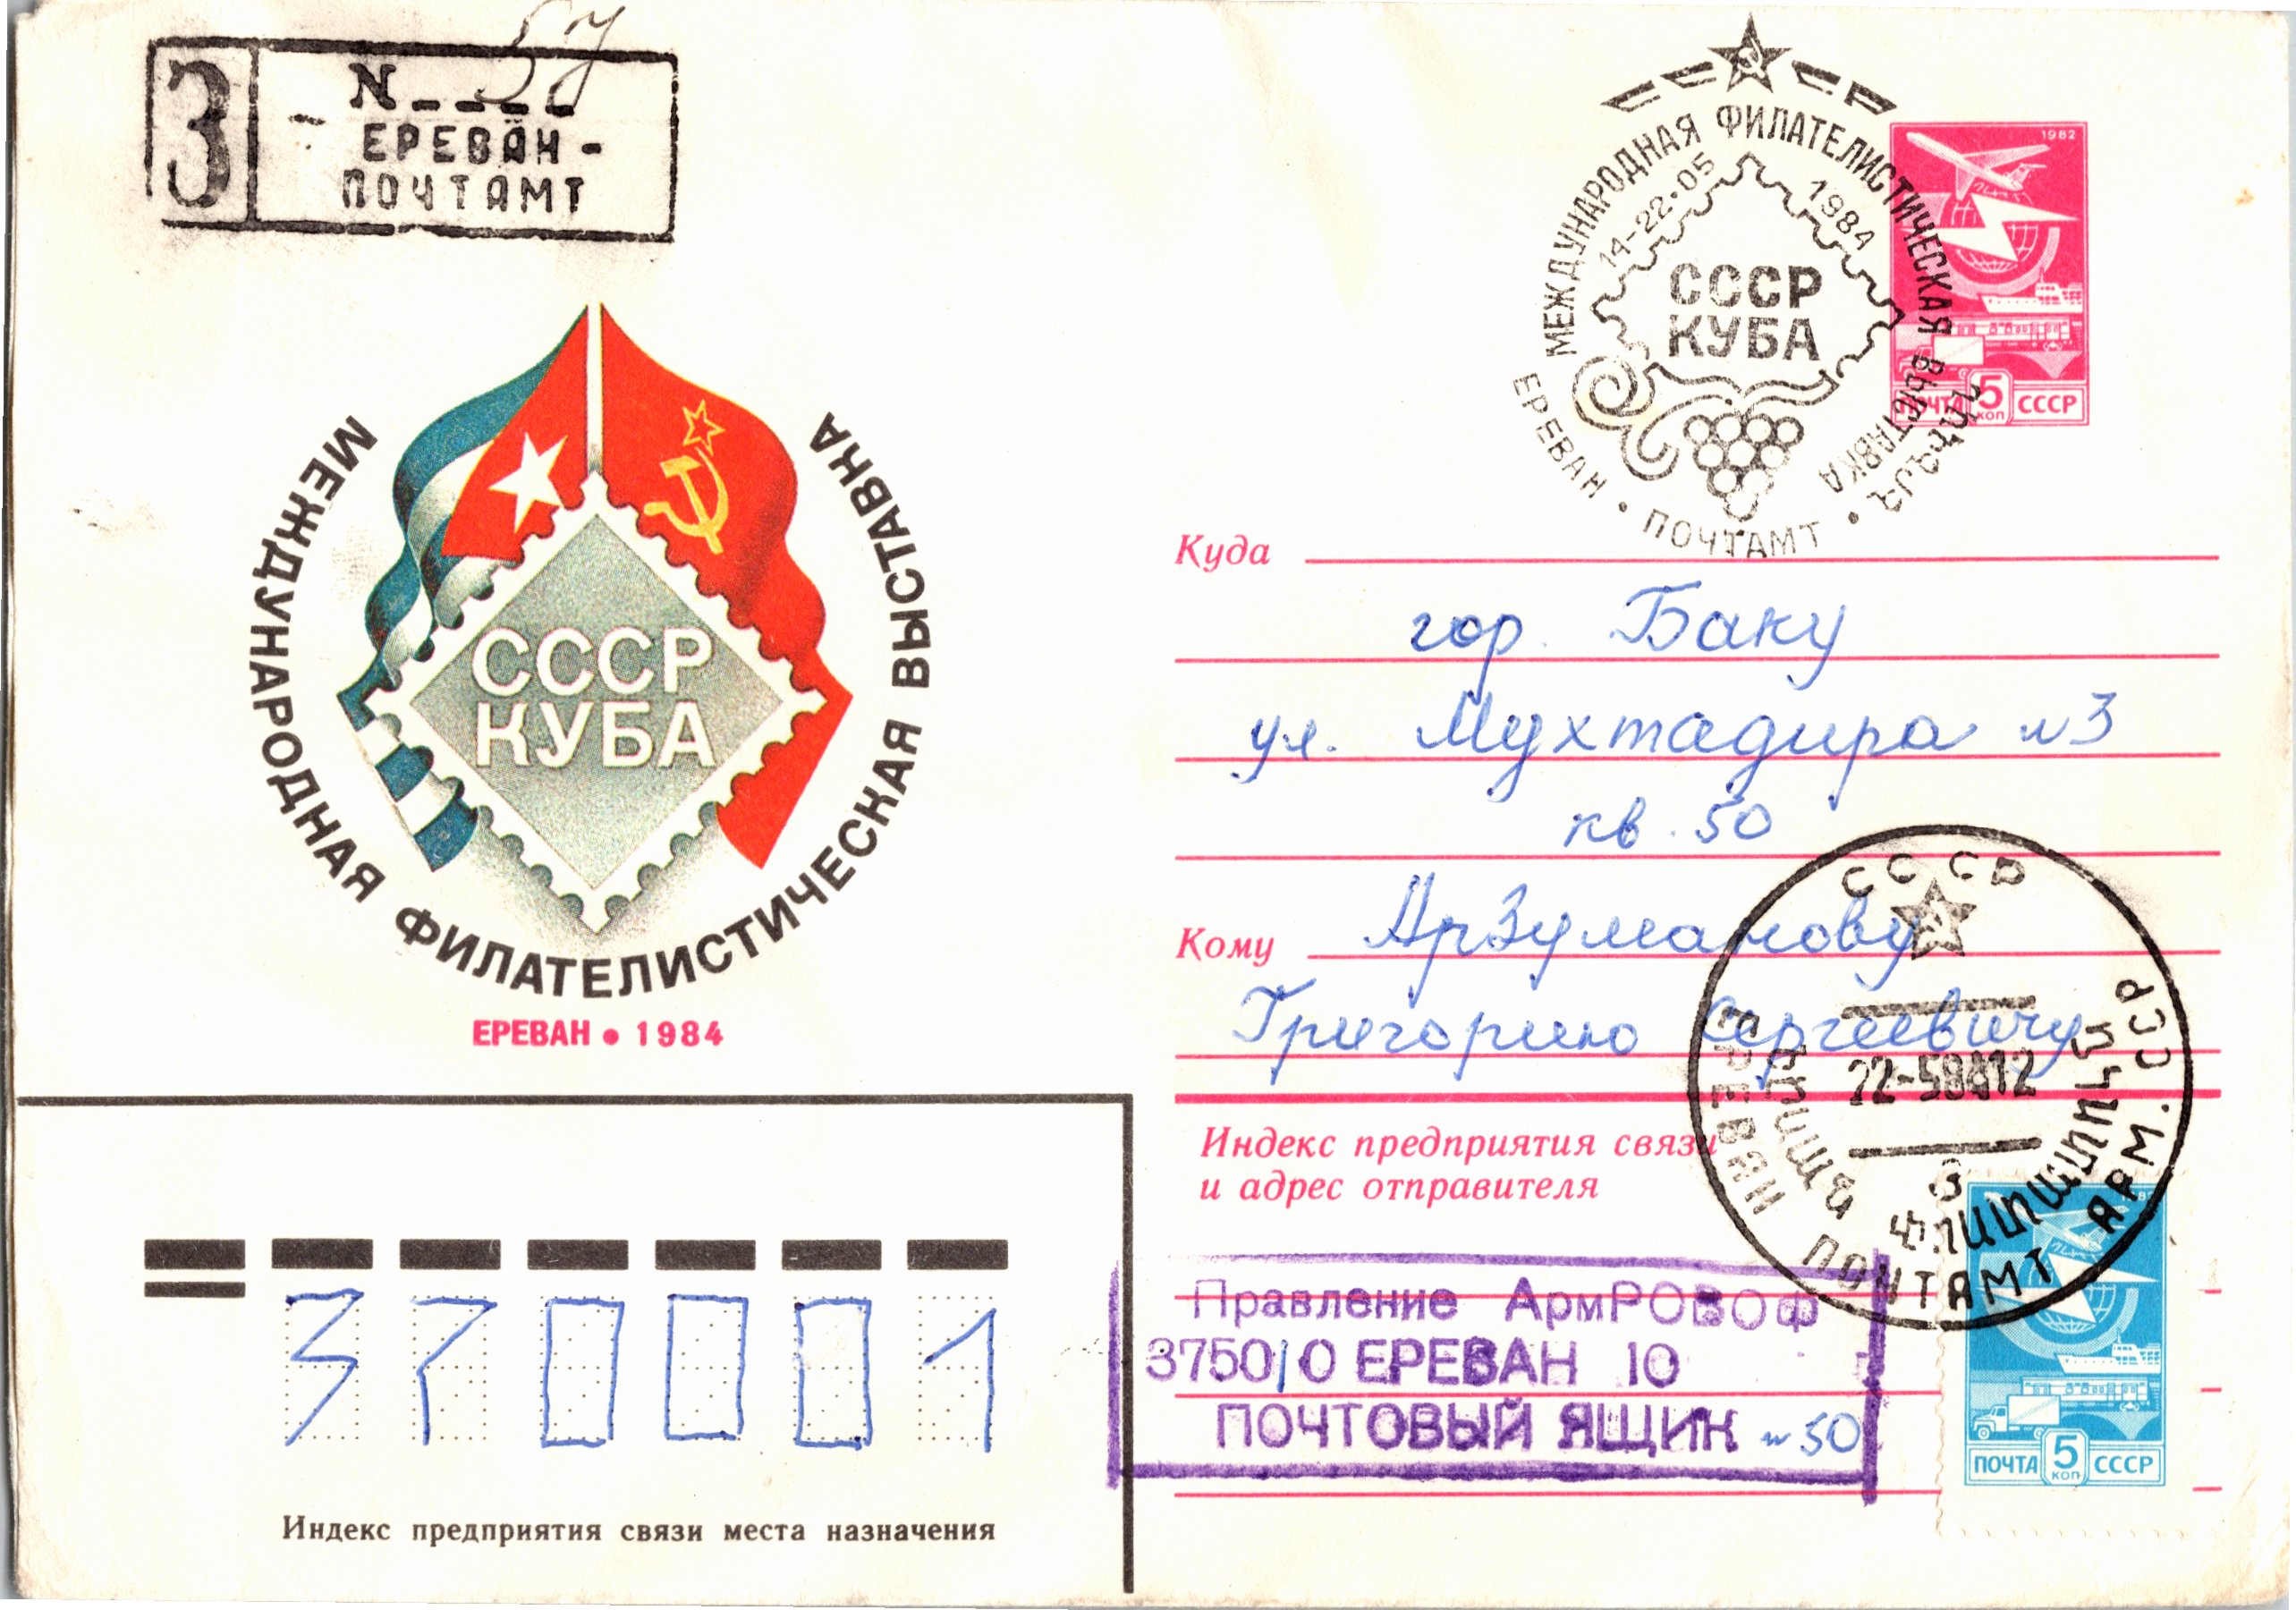 З
N 57
ЕРЕВАН-
ПОЧТАМТ
МЕЖДУНАРОДНАЯ ФИЛАТЕЛИСТИЧЕСКАЯ ВЫСТАВКА
СССР
КУБА
ЕРЕВАН • 1984
СССР
МЕЖДУНАРОДНАЯ ФИЛАТЕЛИСТИЧЕСКАЯ ВЫСТАВКА
14-22•05 1984
СССР
КУБА
ЕРЕВАН • ПОЧТАМТ •
1982
ПОЧТА 5 КОП СССР
Куда
гор. Баку
ул. Мухтадира №3
кв. 50
Кому Арзуманову
Григорию Сергеевичу
СССР
ЕРЕВАН ПОЧТАМТ АРМ. ССР
22-58412
Индекс предприятия связи
и адрес отправителя
Правление АрмРОВОФ
375010 ЕРЕВАН 10
ПОЧТОВЫЙ ЯЩИК №50
ПОЧТА 5 КОП СССР
370001
Индекс предприятия связи места назначения